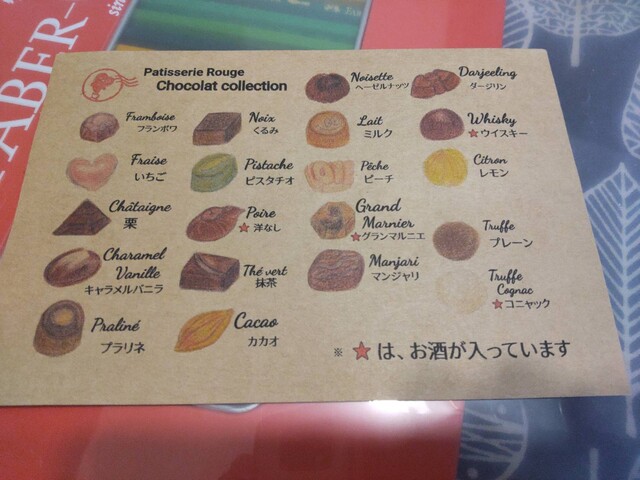 FABER-
sin
Patisserie Rouge
Chocolat collection
Noisette
ヘーゼルナッツ
Darjeeling
ダージリン
Framboise
フランボワ
Noix
くるみ
Lait
ミルク
Whisky
★ウイスキー
Fraise
いちご
Pistache
ピスタチオ
Pêche
ピーチ
Citron
レモン
Châtaigne
栗
Poire
★洋なし
Grand
Marnier
★グランマルニエ
Truffe
プレーン
Charamel
Vanille
キャラメルバニラ
Thé vert
抹茶
Manjari
マンジャリ
Truffe
Cognac
★コニャック
Praliné
プラリネ
Cacao
カカオ
※ ★は、お酒が入っています